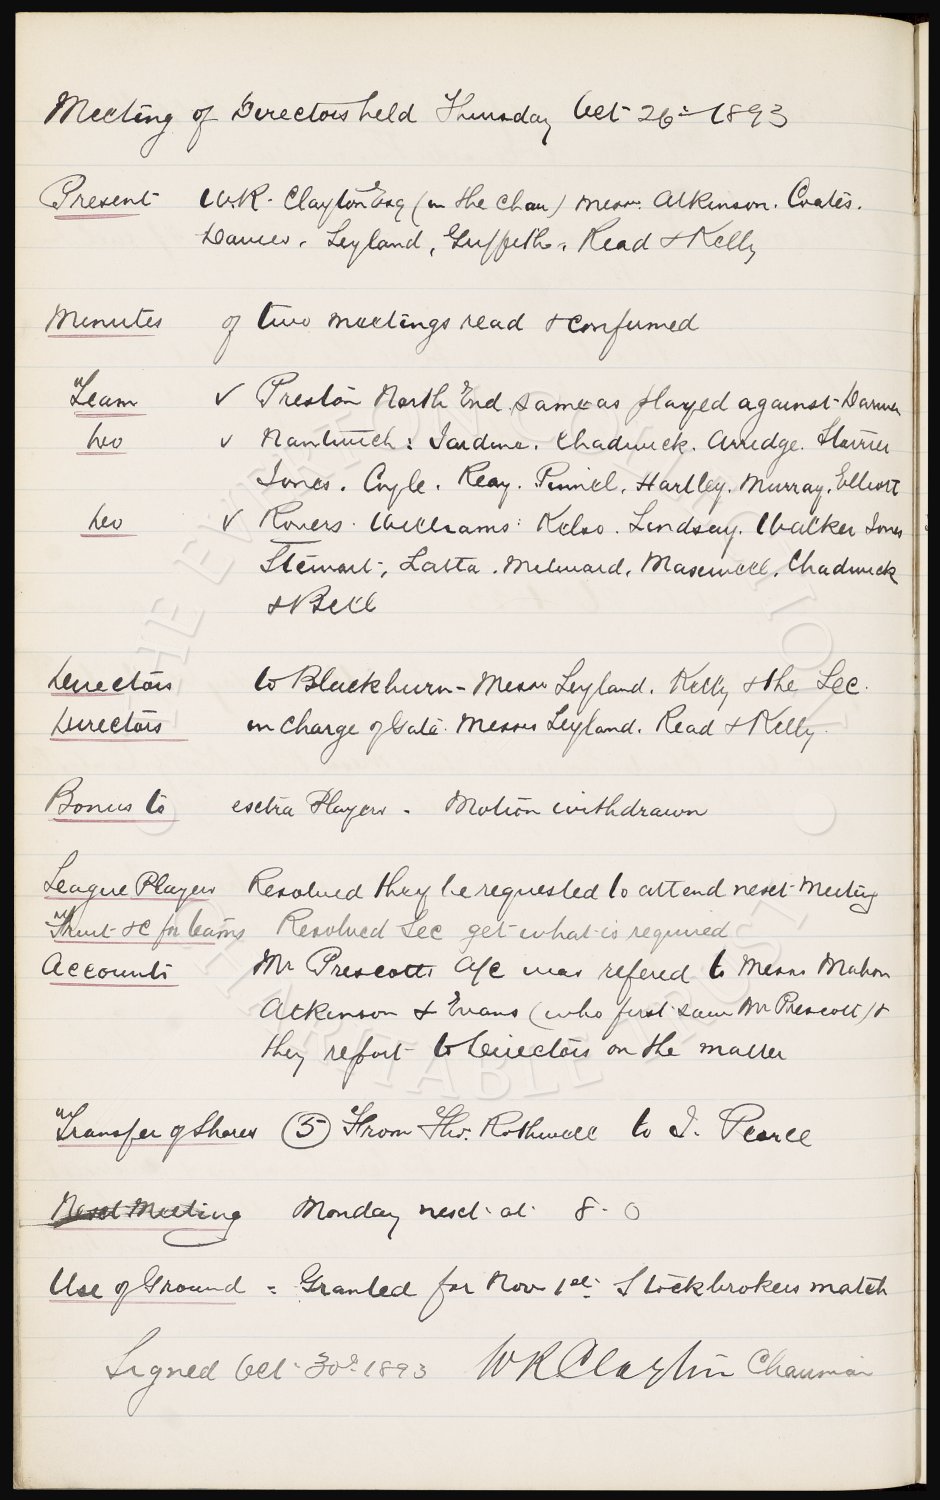 Meeting of Directors held Thursday Oct 26th 1893
Present W.R. Clayton Esq (in the Chair) Messrs. Atkinson. Coates.
Davies. Leyland, Griffiths, Read & Kelly
Minutes of two meetings read & confirmed
Team ✓ Preston North End same as played against Darwen
Do ✓ Nantwich: Jardine. Chadwick. Arridge. Storrier
Jones. Coyle. Reay. Pinnel. Hartley. Murray. Elliott
Do ✓ Rovers. Williams: Kelso. Lindsay. Walker Jones
Stewart, Latta. Milward, Maxwell, Chadwick
& Bell
Directors to Blackburn - Messrs Leyland. Kelly & the Sec.
Directors in charge of Gate. Messrs Leyland. Read & Kelly.
Bonus to extra Players. Motion withdrawn
League Players Resolved they be requested to attend next Meeting
Fruit &c for teams Resolved Sec get what is required
Accounts Mr Prescotts A/c was refered to Messrs Mahon
Atkinson & Evans (who first saw Mr Prescott) &
they report to Directors on the matter
Transfer of Shares (5) From Thos. Rothwell to J. Pearce
Next Meeting Monday next at 8.0
Use of Ground = Granted for Nov 1st Stockbrokers match
Signed Oct 30th 1893 WR Clayton Chairman
THE EVERTON COLLECTION
CHARITABLE TRUST